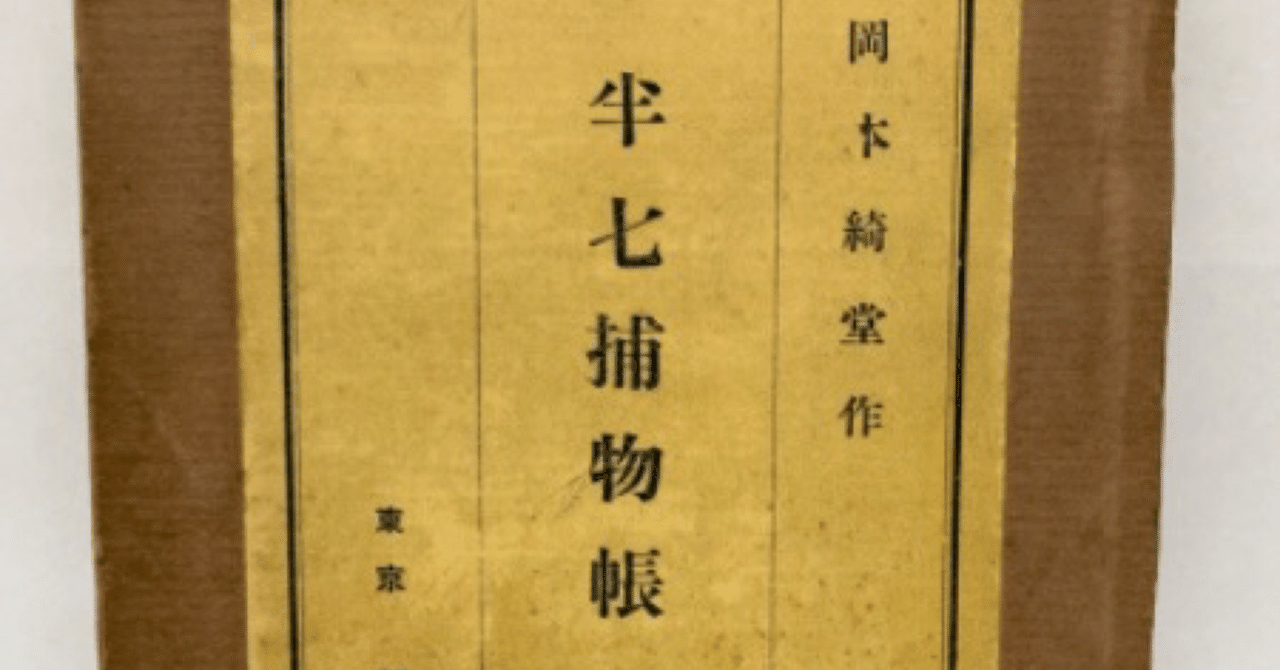 岡本綺堂作
半七捕物帳
東京